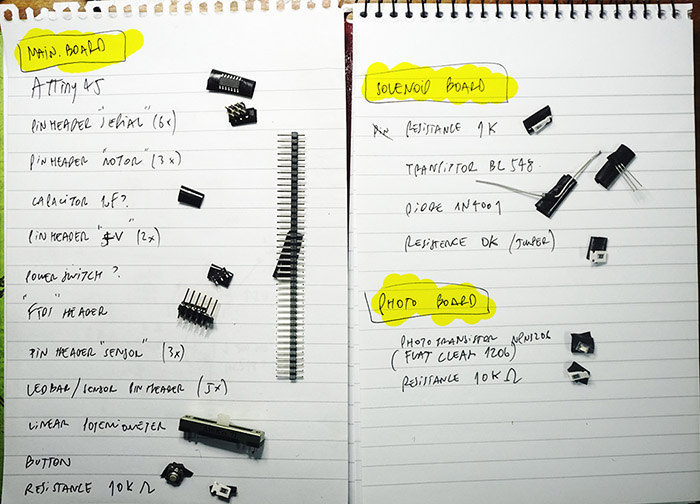 MAIN. BOARD
ATTiny45
PIN HEADER "SERIAL" (6x)
PIN HEADER "MOTOR" (3x)
CAPACITOR 1uF?
PIN HEADER "V" (2x)
POWER SWITCH?
"FTDI" HEADER
PIN HEADER "SENSOR" (3x)
LEDBAR/SENSOR PIN HEADER (5x)
LINEAR POTENTIOMETER
BUTTON
RESISTANCE 10K Ω
SOLENOID BOARD
RESISTANCE 1K
TRANSISTOR BC 548.
DIODE 1N4001
RESISTENCE 0K (JUMPER)
PHOTO BOARD
PHOTOTRANSISTOR NPN1206
(FLAT CLEAR 1206)
RESISTANCE 10K Ω